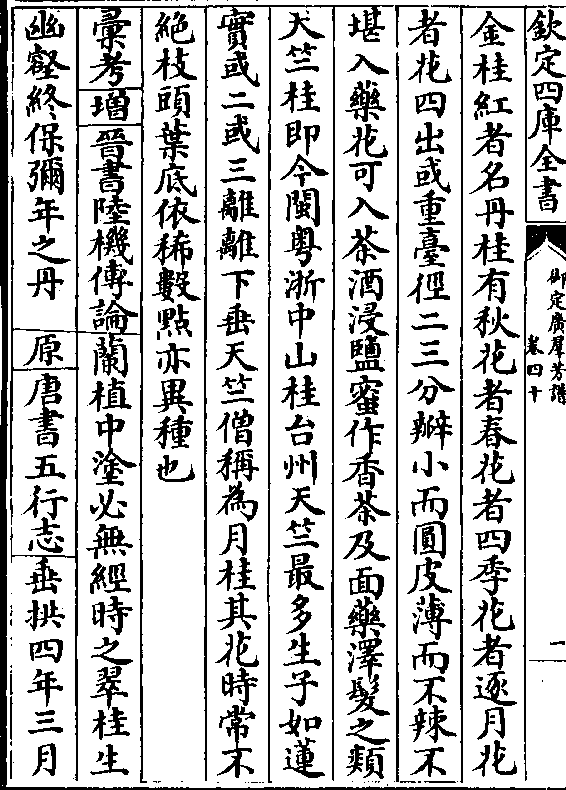 欽定四庫全書
御定廣羣芳譜
卷四十
一
金桂紅者名丹桂有秋花者春花者四季花者逐月花
者花四出或重臺徑二三分瓣小而圓皮薄而不辣不
堪入藥花可入茶酒浸鹽蜜作香茶及面藥澤髮之類
天竺桂即今閩粤浙中山桂台州天竺最多生子如蓮
實或二或三離離下垂天竺僧稱為月桂其花時常不
絶枝頭葉底依稀數點亦異種也
彚考增晉書陸機傳論蘭植中塗必無經時之翠桂生
幽壑終保彌年之丹 原唐書五行志垂拱四年三月